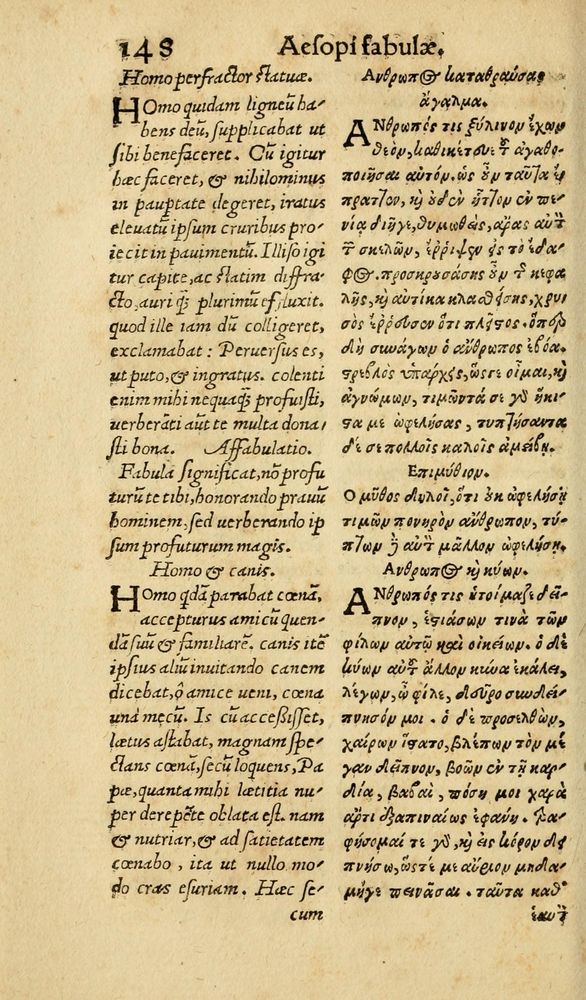 148 Aesopi fabulæ.
Homo perfractor statuæ.
HOmo quidam ligneũ ha⸗
bens deũ, supplicabat ut
sibi benefaceret. Cũ igitur
hæc faceret, & nihilominus
in paupŧate degeret, iratus
eleuatũ ipsum cruribus pro⸗
iecit in pauimentũ. Illiso igi
tur capite, ac statim diffra⸗
cto, auri q̃ꝫ plurimũ effluxit.
quod ille iam dũ colligeret,
exclamabat: Peruersus es,
ut puto, & ingratus. colenti
enim mihi nequaq̃ꝫ profuisti,
uerberãti aũt te multa dona⸗
sti bona. Affabulatio.
Fabula significat, nõ profu
turũ te tibi, honorando prauũ
hominem, sed uerberando ip
sum profuturum magis.
Homo & canis.
HOmo q̃dã parabat cœnã,
accepturus amicũ quen⸗
dã suũ & familiarẽ. canis itẽ
ipsius aliũ inuitando canem
dicebat, ô amice ueni, cœna
unà mecũ. Is cũ accessisset,
lætus astabat, magnam spe⸗
ctans cœnã, secũ loquens, Pa
pæ, quanta mihi lætitia nu⸗
per derepẽte oblata est. nam
& nutriar, & ad satietatem
cœnabo, ita ut nullo mo⸗
do cras esuriam. Hæc se⸗
cum
Ανθρωπος καταθραύσας
ἄγαλμα.
ΑΝθρωπός τις ξύλινον ἔχων
θεὸν, καθικέτευε τοῦ ἀγαθο⸗
ποιῆσαι αὐτόν. ὡς οὖν ταῦτα ἔ
πραττον, καὶ οὐδὲν ἧττον ἐν πε⸗
νίᾳ διῆγε, θυμωθεὶς, ἄρας αὐτὸν
τοῦ σκελῶν, ἔῤῥιψεν εἰς τὸ ἔδα⸗
φος. προσκρουσάσης οὖν τῆς κεφα
λῆς, καὶ αὐτίκα κλασθείσης, χρυ⸗
σὸς ἔῤῥευσεν ὅτι πλεῖστος. ὅνπερ
δὴ συνάγων ὁ ἄνθρωπος ἐβόα.
στρεβλὸς ὑπάρχεις, ὥς γε οἶμαι, καὶ
ἀγνώμων, τιμῶντά σε γὰρ ἥκι⸗
στα με ὠφέλησας, τυπτήσαντα
δέ σε πολλοῖς καλοῖς ἀμείβῃ.
Επιμύθιον.
Ο μῦθος δηλοῖ, ὅτι οὐκ ὠφελήσῃ
τιμῶν πονηρὸν ἄνθρωπον, τύ⸗
πτων δὲ αὐτὸν μᾶλλον ὠφελήσῃ.
Ανθρωπος καὶ κύων.
ΑΝθρωπός τις ἑτοίμαζε δεῖ⸗
πνον, ἑστιάσων τινὰ τῶν
φίλων αὐτῷ καὶ οἰκείων. ὁ δὲ
κύων αὐτοῦ ἄλλον κύνα ἐκάλει,
λέγων, ὦ φίλε, δεῦρο συνδεί⸗
πνησόν μοι. ὁ δὲ προσελθὼν,
χαίρων ἵστατο, βλέπων τὸν μέ
γαν δεῖπνον, βοῶν ἐν τῇ καρ⸗
δίᾳ, βαβαὶ, πόση μοι χαρὰ
ἄρτι ἐξαπιναίως ἐφάνη. τρα⸗
φήσομαί τε γὰρ, καὶ εἰς κόρον δει
πνήσω, ὥστέ με αὔριον μηδα⸗
μῆγε πεινᾶσαι. ταῦτα καθ'
ἑαυτὸν